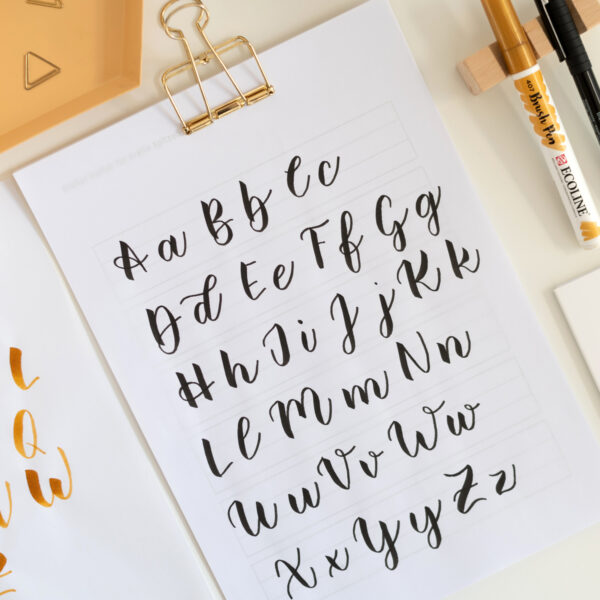 Aa Bb Cc
Dd Ee Ff Gg
Hh Ii Jj Kk
Ll Mm Nn
Uu Vv Ww
Xx Yy Zz
L
Q
W
407 Brush Pen
ECOLINE